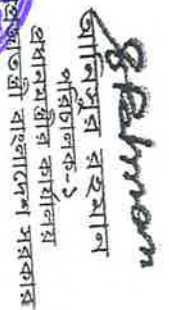 আনিসুর রহমান
পরিচালক-১
প্রধানমন্ত্রীর কার্যালয়
গণপ্রজাতন্ত্রী বাংলাদেশ সরকার